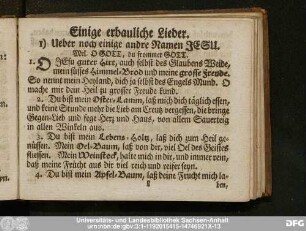 Einige erbauliche Lieder.
1) Ueber noch einige andre Namen JESU.
Mel. O GOTT, du frommer GOTT.
1. O JEsu guter Hirt, auch selbst des Glaubens Weide,
mein süsses Himmel-Brod und meine grosse Freude.
So nennt mein Heyland, dich ja selbst des Engels Mund. O
mache mir dein Heil zu grosser Freude kund.
2. Du bist mein Oster-Lamm, laß mich dich täglich essen,
und keine Stunde mehr die Lieb am Creutz vergessen, die bringe
Gegen-Lieb und fege Herz und Haus, von allem Sauerteig
in allen Winkeln aus.
3. Du bist mein Lebens-Holtz, laß dich zum Heil ge-
niessen. Mein Oel-Baum, laß von dir, viel Oel des Geistes
fliessen. Mein Weinstock, halte mich in dir, und immer rein,
daß meine Früchte aus dir viel reich und reifer seyn.
4. Du bist mein Apfel-Baum, laß deine Frucht mich la-
ben,
Universitäts- und Landesbibliothek Sachsen-Anhalt
urn:nbn:de:gbv:3:1-1192015415-14746921X-13